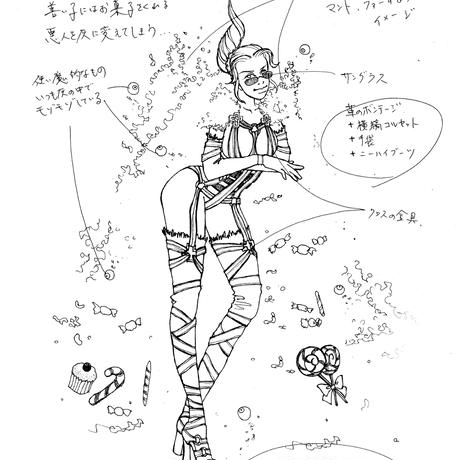 善い子にはお菓子をくれる
悪人を灰に変えてしまう…
マント、ファー
イメージ
使い魔的なもの
いつも灰の中で
モゾモゾしている
サングラス
革のボンテージ
+ 編コルセット
+ 手袋
+ ニーハイブーツ
クロスの金具